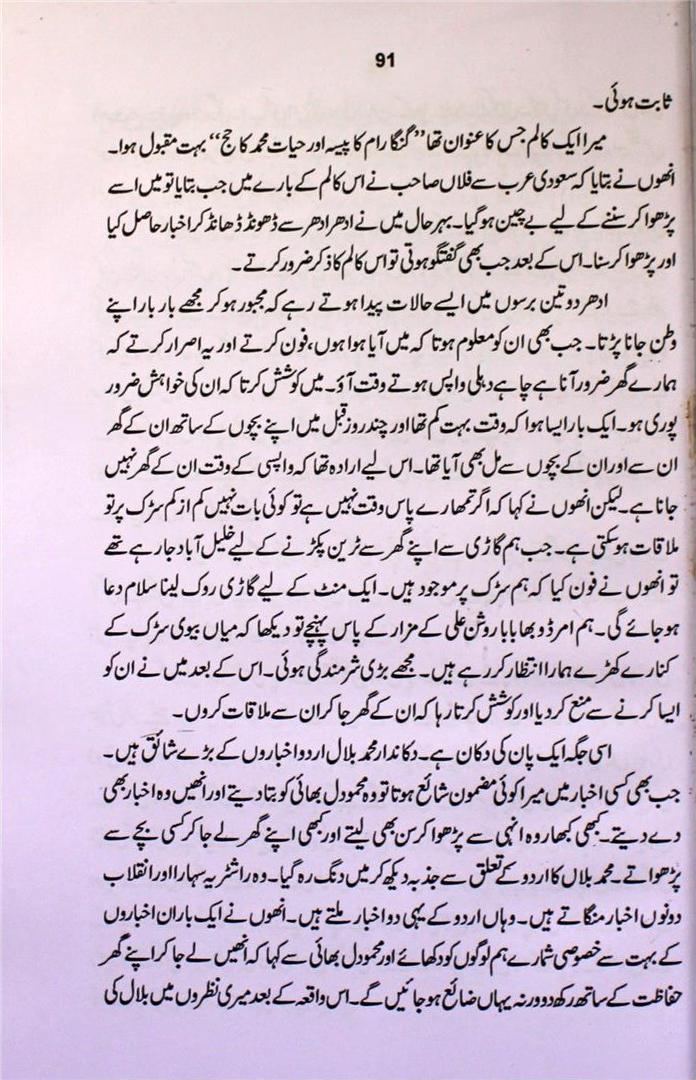 91
ثابت ہوئی۔
میرا ایک کالم جس کا عنوان تھا ’’گنگا رام کا پیسہ اور حیات محمد کا حج‘‘ بہت مقبول ہوا۔
انھوں نے بتایا کہ سعودی عرب سے فلاں صاحب نے اس کالم کے بارے میں جب بتایا تو میں اسے
پڑھوا کر سننے کے لیے بے چین ہوگیا۔ بہر حال میں نے ادھر ادھر سے ڈھونڈ ڈھانڈ کر اخبار حاصل کیا
اور پڑھوا کر سنا۔ اس کے بعد جب بھی گفتگو ہوتی تو اس کالم کا ذکر ضرور کرتے۔
ادھر دو تین برسوں میں ایسے حالات پیدا ہوتے رہے کہ مجبور ہو کر مجھے بار بار اپنے
وطن جانا پڑتا۔ جب بھی ان کو معلوم ہوتا کہ میں آیا ہوا ہوں، فون کرتے اور یہ اصرار کرتے کہ
ہمارے گھر ضرور آنا ہے چاہے دہلی واپس ہوتے وقت آؤ۔ میں کوشش کرتا کہ ان کی خواہش ضرور
پوری ہو۔ ایک بار ایسا ہوا کہ وقت بہت کم تھا اور چند روز قبل میں اپنے بچوں کے ساتھ ان کے گھر
ان سے اور ان کے بچوں سے مل بھی آیا تھا۔ اس لیے ارادہ تھا کہ واپسی کے وقت ان کے گھر نہیں
جانا ہے۔ لیکن انھوں نے کہا کہ اگر تمھارے پاس وقت نہیں ہے تو کوئی بات نہیں کم از کم سڑک پر تو
ملاقات ہوسکتی ہے۔ جب ہم گاڑی سے اپنے گھر سے ٹرین پکڑنے کے لیے خلیل آباد جا رہے تھے
تو انھوں نے فون کیا کہ ہم سڑک پر موجود ہیں۔ ایک منٹ کے لیے گاڑی روک لینا سلام دعا
ہو جائے گی۔ ہم امرڈوبھا بابا روشن علی کے مزار کے پاس پہنچے تو دیکھا کہ میاں بیوی سڑک کے
کنارے کھڑے ہمارا انتظار کر رہے ہیں۔ مجھے بڑی شرمندگی ہوئی۔ اس کے بعد میں نے ان کو
ایسا کرنے سے منع کر دیا اور کوشش کرتا رہا کہ ان کے گھر جا کر ان سے ملاقات کروں۔
اسی جگہ ایک پان کی دکان ہے۔ دکاندار محمد بلال اردو اخباروں کے بڑے شائق ہیں۔
جب بھی کسی اخبار میں میرا کوئی مضمون شائع ہوتا تو وہ محمودل بھائی کو بتا دیتے اور انھیں وہ اخبار بھی
دے دیتے۔ کبھی کبھار وہ انہی سے پڑھوا کر سن بھی لیتے اور کبھی اپنے گھر لے جا کر کسی بچے سے
پڑھواتے۔ محمد بلال کا اردو کے تعلق سے جذبہ دیکھ کر میں دنگ رہ گیا۔ وہ راشٹریہ سہارا اور انقلاب
دونوں اخبار منگاتے ہیں۔ وہاں اردو کے یہی دو اخبار ملتے ہیں۔ انھوں نے ایک بار ان اخباروں
کے بہت سے خصوصی شمارے ہم لوگوں کو دکھائے اور محمودل بھائی سے کہا کہ انھیں لے جا کر اپنے گھر
حفاظت کے ساتھ رکھ دو ورنہ یہاں ضائع ہو جائیں گے۔ اس واقعہ کے بعد میری نظروں میں بلال کی